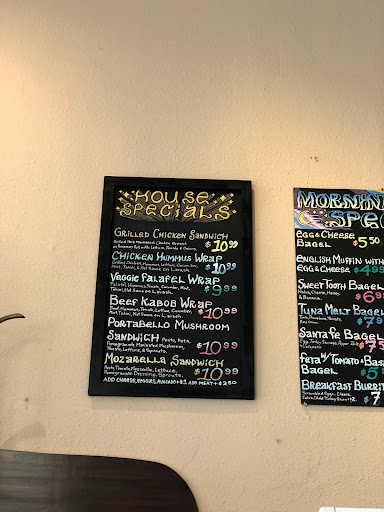 HOUSE
SPECIALS
GRILLED CHICKEN SANDWICH
Grilled Herb Marinated Chicken Breast
on Baguette Roll with Lettuce, Tomato & Onions. $10.99
CHICKEN HUMMUS WRAP
Grilled Chicken, Hummus, Lettuce, Cucumber,
Mint, Tahini, & Hot Sauce on Lavash. $10.99
VEGGIE FALAFEL WRAP
Falafel, Hummus, Tomato, Cucumber, Mint,
Tahini, Hot Sauce on Lavash. $9.99
BEEF KABOB WRAP
Beef, Hummus, Tomato, Lettuce, Cucumber,
Mint, Tahini, Hot Sauce on Lavash. $10.99
PORTABELLO MUSHROOM
SANDWICH Pesto, Feta,
Pomegranate Marinated Mushroom,
Tomato, Lettuce, & Sprouts. $10.99
MOZARELLA SANDWICH
Pesto, Tomato, Mozzarella, Lettuce,
Pomegranate Dressing, Sprouts. $10.99
ADD CHEESE, VEGGIES, AVOCADO +$1. ADD MEAT +$2.50
MORNIN
SPE
EGG & CHEESE
BAGEL $5.50
ENGLISH MUFFIN WITH
EGG & CHEESE $4.99
SWEET TOOTH BAGEL
Nutella, Cheese, Honey,
& Banana. $6.9
TUNA MELT BAGEL
Tuna,
Cheese. $7.9
SANTA FE BAGEL
Egg, Turkey, Sausage, Pepper Jack
$7.
FETA W/ TOMATO + BAS
BAGEL $5.
BREAKFAST BURRIT
Scrambled Eggs, Cheese,
Salsa. $7